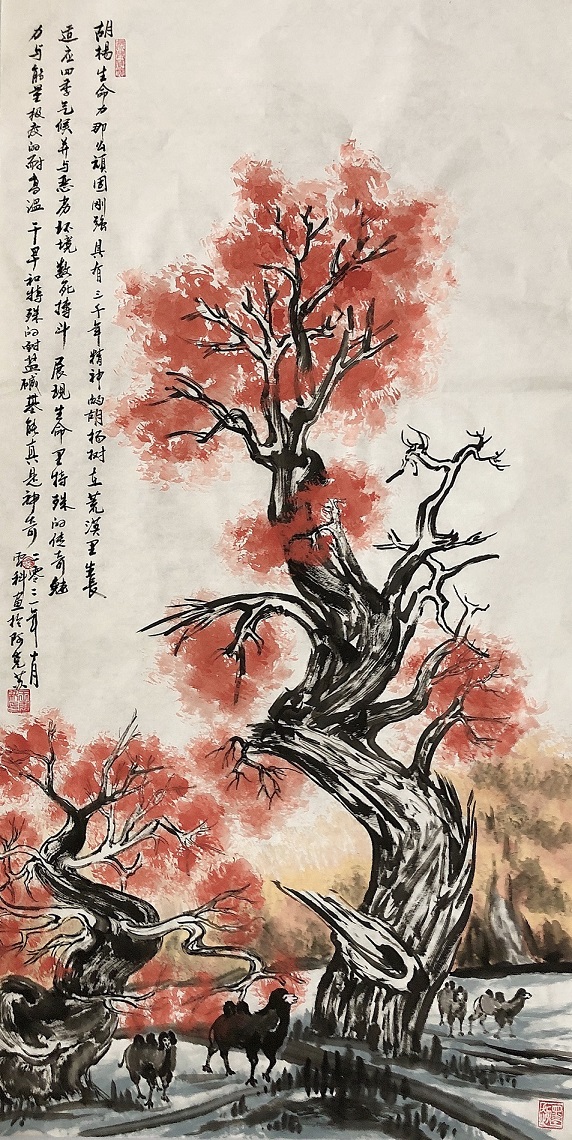 胡杨生命力那么顽固刚强具有三千年精神的胡杨树在荒漠里生长
适应四季气候并与恶劣环境殊死搏斗展现生命里特殊的传奇魅
力与能量极度的耐高温干旱和特殊的耐盐碱基能真是神奇
二零二一年十一月
科画于阿克苏